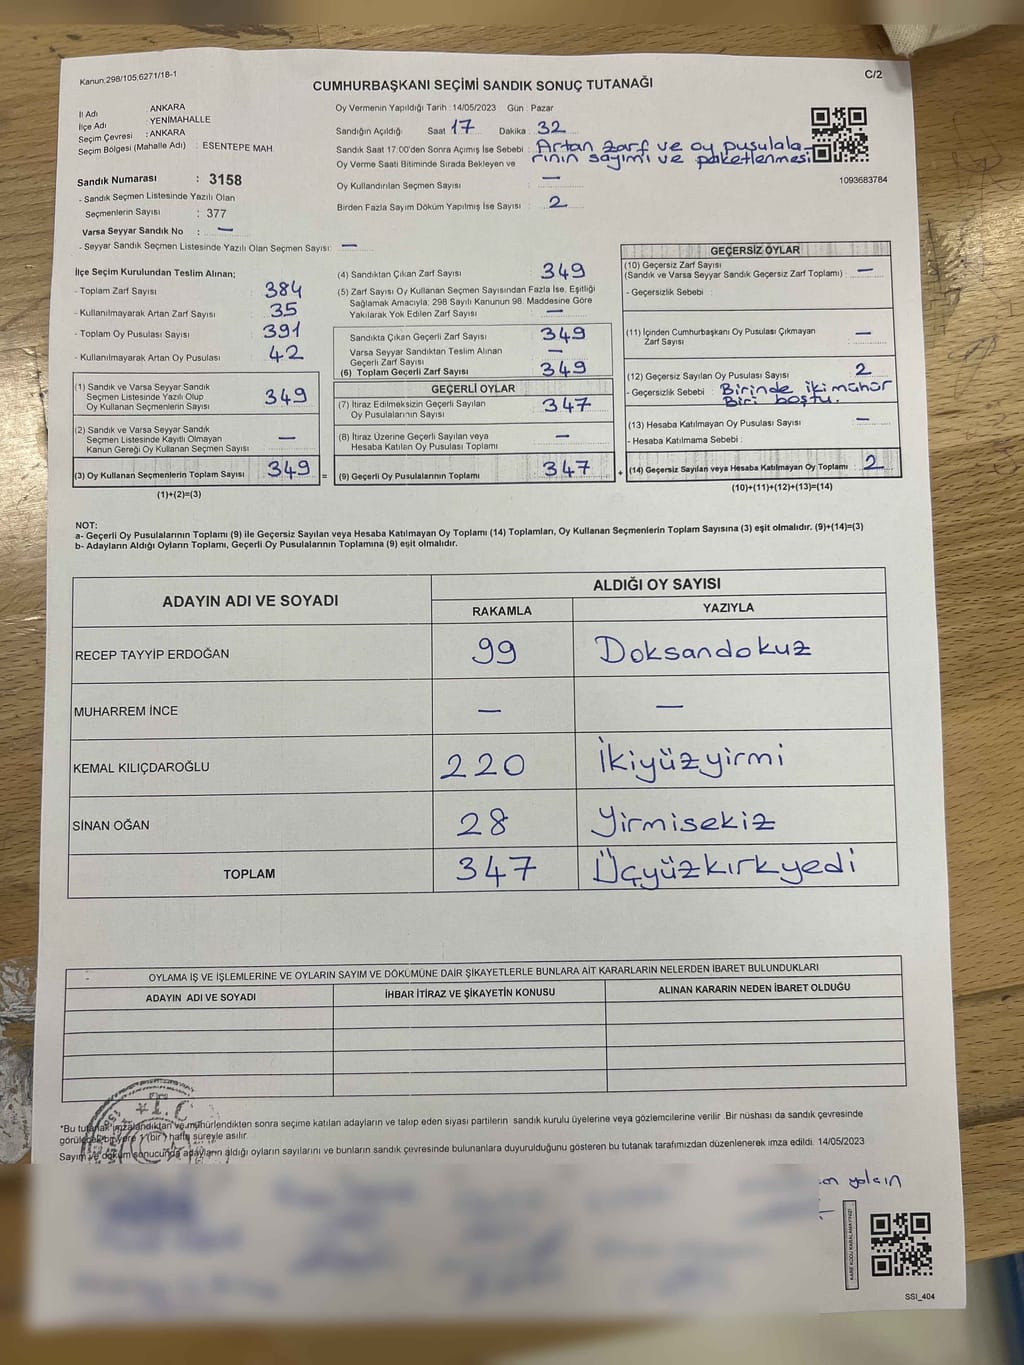 Kanun:298/105,6271/18-1
C/2
CUMHURBAŞKANI SEÇİMİ SANDIK SONUÇ TUTANAĞI
İl Adı : ANKARA
İlçe Adı : YENİMAHALLE
Seçim Çevresi : ANKARA
Seçim Bölgesi (Mahalle Adı) : ESENTEPE MAH.
Sandık Numarası : 3158
- Sandık Seçmen Listesinde Yazılı Olan
Seçmenlerin Sayısı : 377
Varsa Seyyar Sandık No : —
- Seyyar Sandık Seçmen Listesinde Yazılı Olan Seçmen Sayısı: —
Oy Vermenin Yapıldığı Tarih : 14/05/2023 Gün : Pazar
Sandığın Açıldığı Saat 17 Dakika : 32
Sandık Saat 17:00'den Sonra Açımış İse Sebebi : Artan zarf ve oy pusulala-
Oy Verme Saati Bitiminde Sırada Bekleyen ve rının sayımı ve paketlenmesi
Oy Kullandırılan Seçmen Sayısı —
Birden Fazla Sayım Döküm Yapılmış İse Sayısı : 2
1093683784
İlçe Seçim Kurulundan Teslim Alınan;
- Toplam Zarf Sayısı 384
- Kullanılmayarak Artan Zarf Sayısı 35
- Toplam Oy Pusulası Sayısı 391
- Kullanılmayarak Artan Oy Pusulası 42
(1) Sandık ve Varsa Seyyar Sandık
Seçmen Listesinde Yazılı Olup
Oy Kullanan Seçmenlerin Sayısı 349
(2) Sandık ve Varsa Seyyar Sandık
Seçmen Listesinde Kayıtlı Olmayan
Kanun Gereği Oy Kullanan Seçmen Sayısı —
(3) Oy Kullanan Seçmenlerin Toplam Sayısı 349 =
(1)+(2)=(3)
(4) Sandıktan Çıkan Zarf Sayısı 349
(5) Zarf Sayısı Oy Kullanan Seçmen Sayısından Fazla İse, Eşitliği
Sağlamak Amacıyla; 298 Sayılı Kanunun 98. Maddesine Göre
Yakılarak Yok Edilen Zarf Sayısı —
Sandıkta Çıkan Geçerli Zarf Sayısı 349
Varsa Seyyar Sandıktan Teslim Alınan
Geçerli Zarf Sayısı —
(6) Toplam Geçerli Zarf Sayısı 349
GEÇERLİ OYLAR
(7) İtiraz Edilmeksizin Geçerli Sayılan
Oy Pusulalarının Sayısı 347
(8) İtiraz Üzerine Geçerli Sayılan veya
Hesaba Katılan Oy Pusulası Toplamı —
(9) Geçerli Oy Pusulalarının Toplamı 347 +
GEÇERSİZ OYLAR
(10) Geçersiz Zarf Sayısı
(Sandık ve Varsa Seyyar Sandık Geçersiz Zarf Toplamı) —
- Geçersizlik Sebebi :
(11) İçinden Cumhurbaşkanı Oy Pusulası Çıkmayan
Zarf Sayısı : —
(12) Geçersiz Sayılan Oy Pusulası Sayısı 2
- Geçersizlik Sebebi : Birinde iki mühür
Biri boştu.
(13) Hesaba Katılmayan Oy Pusulası Sayısı —
- Hesaba Katılmama Sebebi :
(14) Geçersiz Sayılan veya Hesaba Katılmayan Oy Toplamı 2
(10)+(11)+(12)+(13)=(14)
NOT:
a- Geçerli Oy Pusulalarının Toplamı (9) ile Geçersiz Sayılan veya Hesaba Katılmayan Oy Toplamı (14) Toplamları, Oy Kullanan Seçmenlerin Toplam Sayısına (3) eşit olmalıdır. (9)+(14)=(3)
b- Adayların Aldığı Oyların Toplamı, Geçerli Oy Pusulalarının Toplamına (9) eşit olmalıdır.
ADAYIN ADI VE SOYADI
ALDIĞI OY SAYISI
RAKAMLA YAZIYLA
RECEP TAYYİP ERDOĞAN 99 Doksandokuz
MUHARREM İNCE — —
KEMAL KILIÇDAROĞLU 220 İkiyüzyirmi
SİNAN OĞAN 28 Yirmisekiz
TOPLAM 347 Üçyüzkırkyedi
OYLAMA İŞ VE İŞLEMLERİNE VE OYLARIN SAYIM VE DÖKÜMÜNE DAİR ŞİKAYETLERLE BUNLARA AİT KARARLARIN NELERDEN İBARET BULUNDUKLARI
ADAYIN ADI VE SOYADI İHBAR İTİRAZ VE ŞİKAYETİN KONUSU ALINAN KARARIN NEDEN İBARET OLDUĞU
T.C
*Bu tutanak imzalandıktan ve mühürlendikten sonra seçime katılan adayların ve talep eden siyasi partilerin sandık kurulu üyelerine veya gözlemcilerine verilir. Bir nüshası da sandık çevresinde
görülecek bir yere 1 (bir) hafta süreyle asılır.
Sayım ve döküm sonucunda adayların aldığı oyların sayılarını ve bunların sandık çevresinde bulunanlara duyurulduğunu gösteren bu tutanak tarafımızdan düzenlenerek imza edildi. 14/05/2023
yalçın
KARE KODU KARALAMAYINIZ!
SSI_404